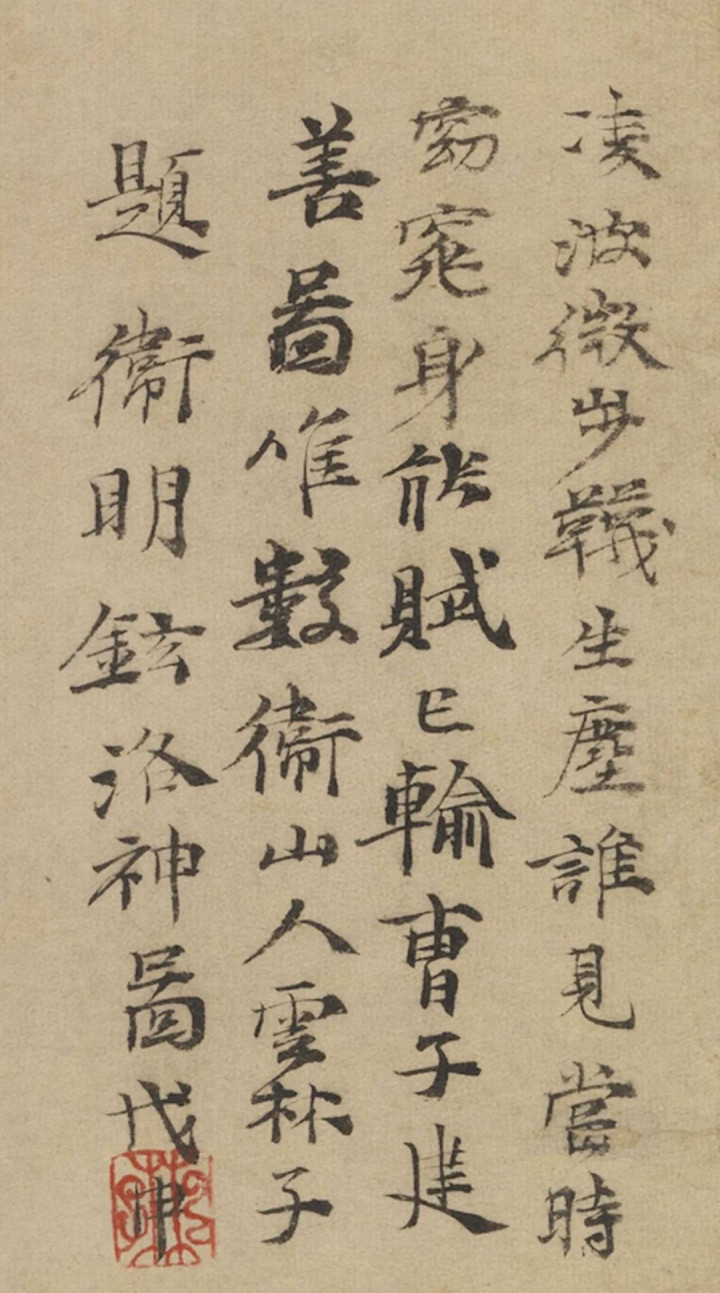 凌波微步韈生塵誰見當時
窈窕身能賦已輸曹子建
善圖惟數衛山人雲林子
題衛明鉉洛神圖戊申